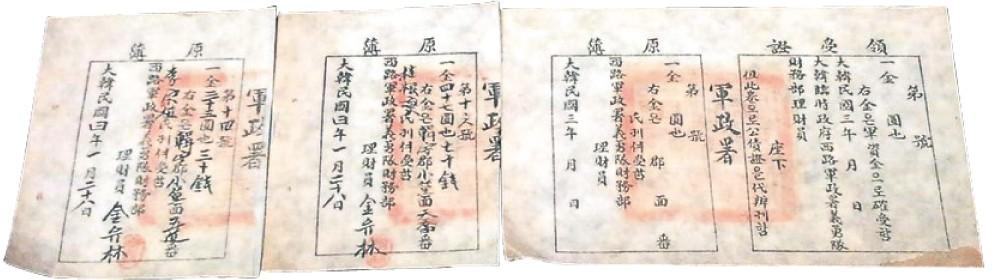 領受證
第 號
一金 圓也
右金은軍資金으로確受함
大韓民國三年 月 日
大韓臨時政府西路軍政署義勇隊
財務部理財員
座下
但此券으로公債證을代辨
軍政署
原簿
第 號
一金 圓也
右金은 郡 面 番
氏 受함
西路軍政署義勇隊財務部
理財員
大韓民國三年 月 日
軍政署
原簿
號
一金四十七圓也七十錢
右金은 郡小 面 番
氏 受함
西路軍政署義勇隊財務部
理財員 金 林
大韓民國四年一月二十八日
軍政署
原簿
第十四號
一金二十三圓也三十錢
右金은 郡小 面 番
李 氏 受함
西路軍政署義勇隊財務部
理財員 金 林
大韓民國四年一月二十八日